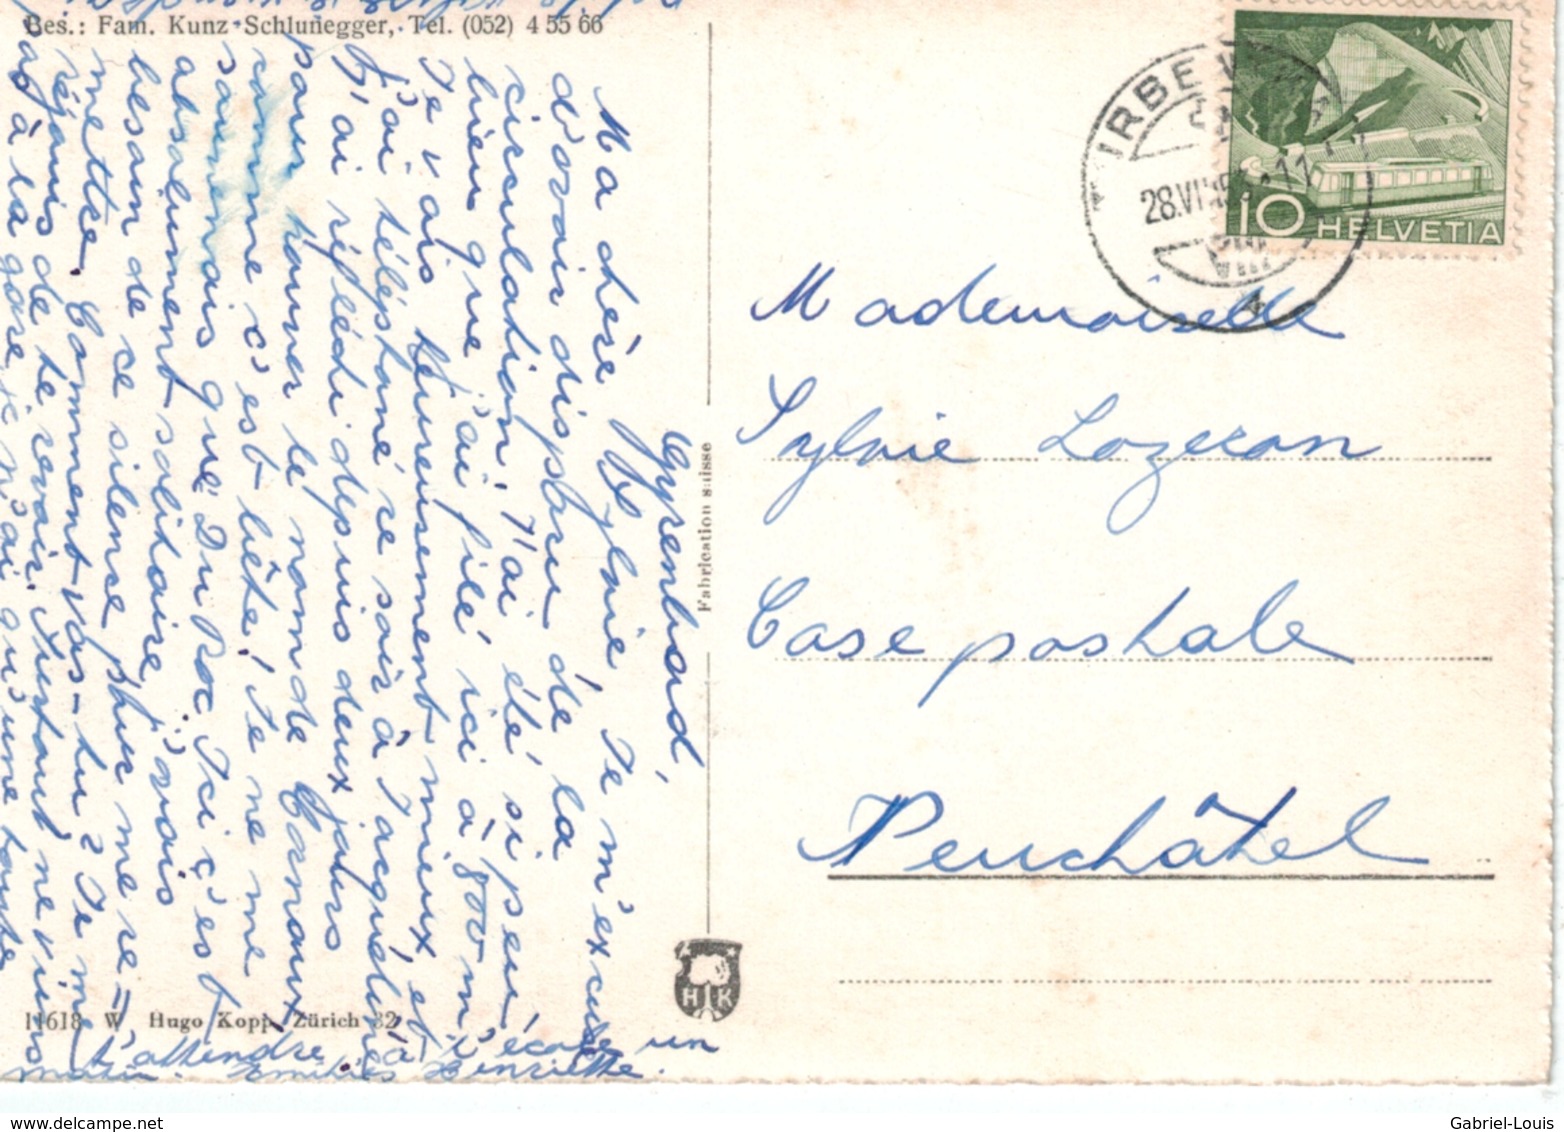 Bes.: Fam. Kunz-Schlunegger, Tel. (052) 4 55 66
Gyrenbad,
Ma chère Sylvie, Te m'excuse
d'avoir disparu de la
circulation! T'ai été si peu
bien que j'ai filé ici à 800 m.
Te vais heureusement mieux, et
j'ai téléphoné ce soir à Jacqueline
T'ai réfléchi depuis deux jours
pour trouver le nom de Cornaux
comme c'est bête! Te ne me
souvenais que Du Roc. Ici c'est
absolument solitaire, j'avais
besoin de ce silence pour me re=
mettre. Comment vas-tu? Te me
réjouis de te revoir. Surtout ne viens
pas à la gare, je n'ai qu'une
t'attendre à l'école un
matin. Amitiés Henriette.
Fabrication suisse
HK
11618 W Hugo Kopp, Zürich 32
TURBE
28.VII
-11
VIII
10 HELVETIA
Mademoiselle
Sylvie Lozeron
Case postale
Neuchâtel
www.delcampe.net
Gabriel-Louis